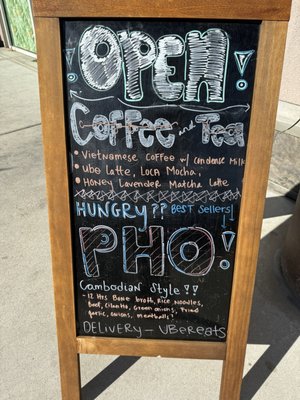 OPEN
Coffee and Tea
• Vietnamese Coffee w/ Condense Milk
• Ube Latte, Loca Mocha,
• Honey Lavender Matcha Latte
HUNGRY?? BEST Sellers!
PHO!
Cambodian Style!!
- 12 Hrs Bone broth, Rice Noodles,
Beef, Cilantro, Green onions, Fried
garlic, onions, meatballs!
DELIVERY - UBEREATS